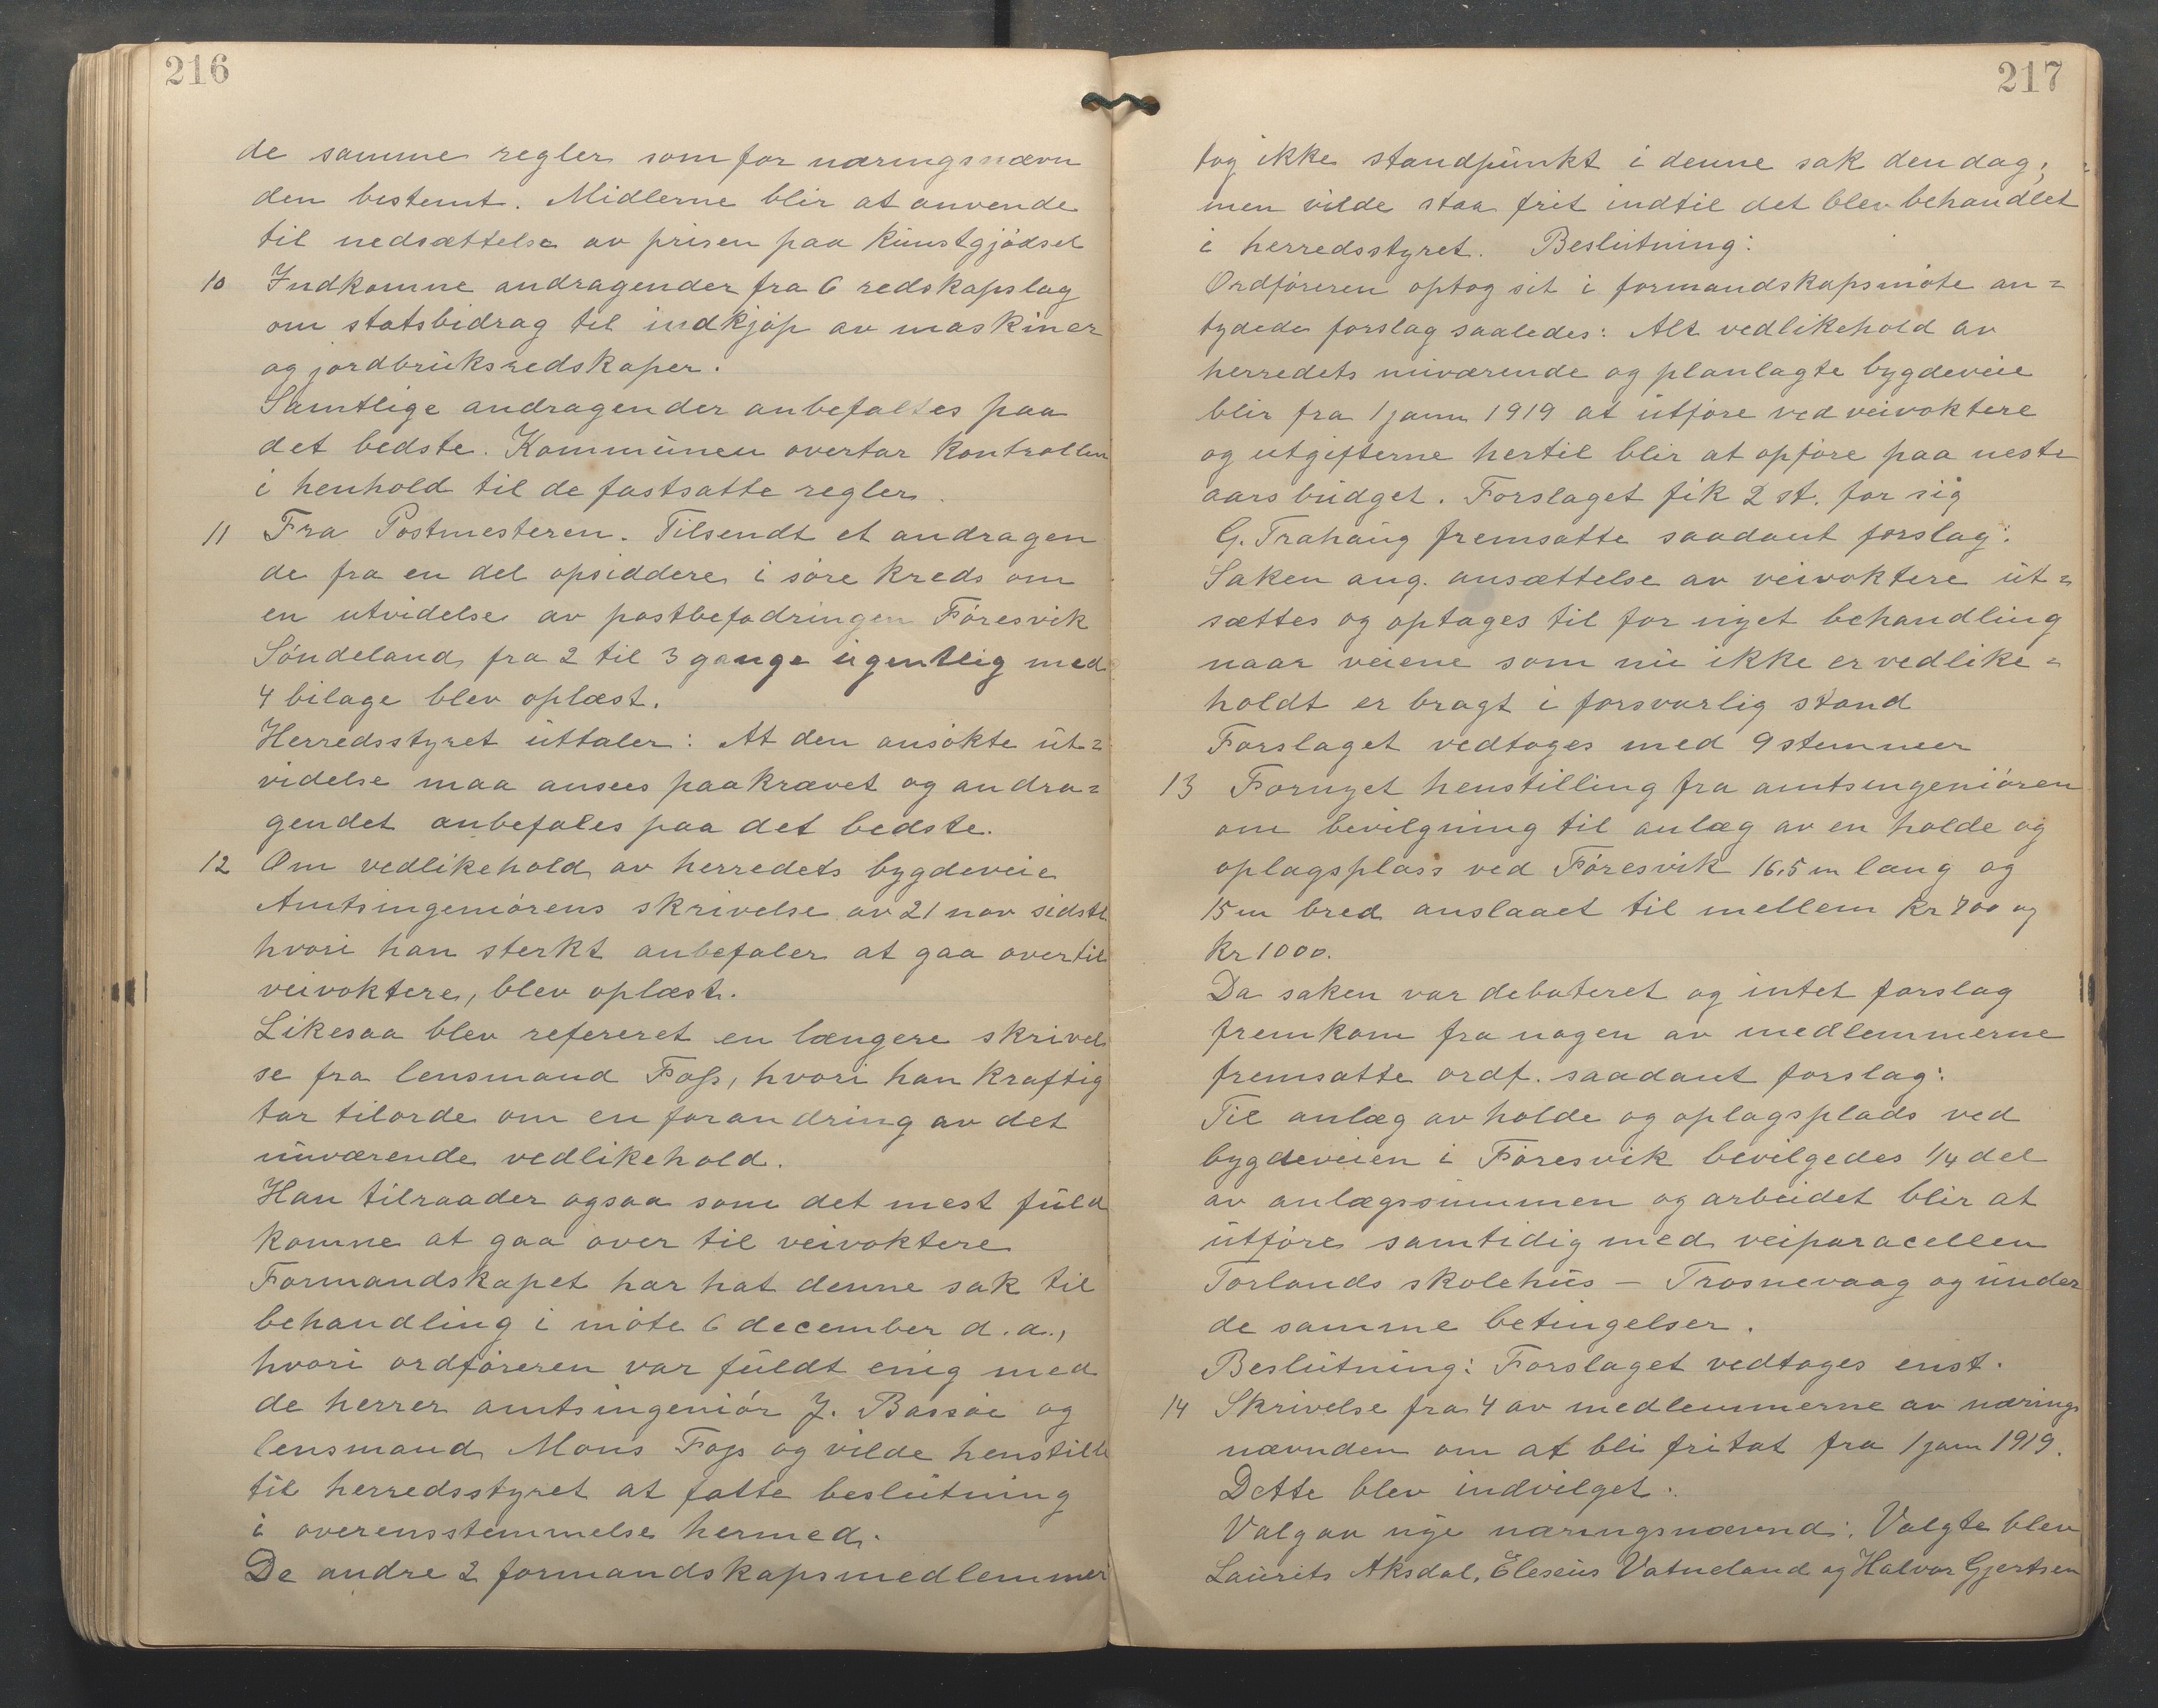 216
de samme regler som for næringsnævn
den bestemt. Midlerne blir at anvende
til nedsættelse av prisen paa kunstgjødsel
10 Indkomne andragender fra 6 redskapslag
om statsbidrag til indkjøp av maskiner
og jordbruksredskaper.
Samtlige andragender anbefaltes paa
det bedste. Kommunen overtar kontrollen
i henhold til de fastsatte regler.
11 Fra Postmesteren. Tilsendt et andragen
de fra en del opsiddere i søre kreds om
en utvidelse av postbefodringen Føresvik
Søndeland fra 2 til 3 gange ugentlig med
4 bilage blev oplæst.
Herredsstyret uttaler: At den ansøkte ut=
videlse maa ansees paakrævet og andra=
gendet anbefales paa det bedste.
12 Om vedlikehold av herredets bygdeveie
Amtsingeniørens skrivelse av 21 nov sidstl
hvori han sterkt anbefaler at gaa over til
veivoktere, blev oplæst.
Likesaa blev refereret en længere skrivel
se fra lensmand Foss, hvori han kraftig
tar tilorde om en forandring av det
nuværende vedlikehold.
Han tilraader ogsaa som det mest fuld
komne at gaa over til veivoktere
Formandskapet har hat denne sak til
behandling i møte 6 december d.a.,
hvori ordføreren var fuldt enig med
de herrer amtsingeniør J. Bassøe og
lensmand Mons Foss og vilde henstille
til herredsstyret at fatte beslutning
i overensstemmelse hermed.
De andre 2 formandskapsmedlemmer
217
tog ikke standpunkt i denne sak den dag,
men vilde staa frit indtil det blev behandlet
i herredsstyret. Beslutning:
Ordføreren optog sit i formandskapsmøte an=
tydede forslag saaledes: Alt vedlikehold av
herredets nuværende og planlagte bygdeveie
blir fra 1 janu 1919 at utføre ved veivoktere
og utgifterne hertil blir at opføre paa neste
aars budget. Forslaget fik 2 st. for sig
G. Trahaug fremsatte saadant forslag:
Saken ang. ansættelse av veivoktere ut=
sættes og optages til for nyet behandling
naar veiene som nu ikke er vedlike=
holdt er bragt i forsvarlig stand
Forslaget vedtoges med 9 stemmer
13 Fornyet henstilling fra amtsingeniøren
om bevilgning til anlæg av en holde og
oplagsplass ved Føresvik 16,5 m lang og
15 m bred anslaaet til mellem kr 700 og
kr 1000.
Da saken var debateret og intet forslag
fremkom fra nogen av medlemmerne
fremsatte ordf. saadant forslag:
Til anlæg av holde og oplagsplads ved
bygdeveien i Føresvik bevilgedes 1/4 del
av anlægssummen og arbeidet blir at
utføre samtidig med veiparacellen
Torlands skolehus – Trosnevaag og under
de samme betingelser.
Beslutning: Forslaget vedtoges enst.
14 Skrivelse fra 4 av medlemmerne av nærings
nævnden om at bli fritat fra 1 janu 1919.
Dette blev indvilget.
Valg av nye næringsnævnd: Valgte blev
Laurits Aksdal, Elesæus Vatneland og Halvor Gjertsen